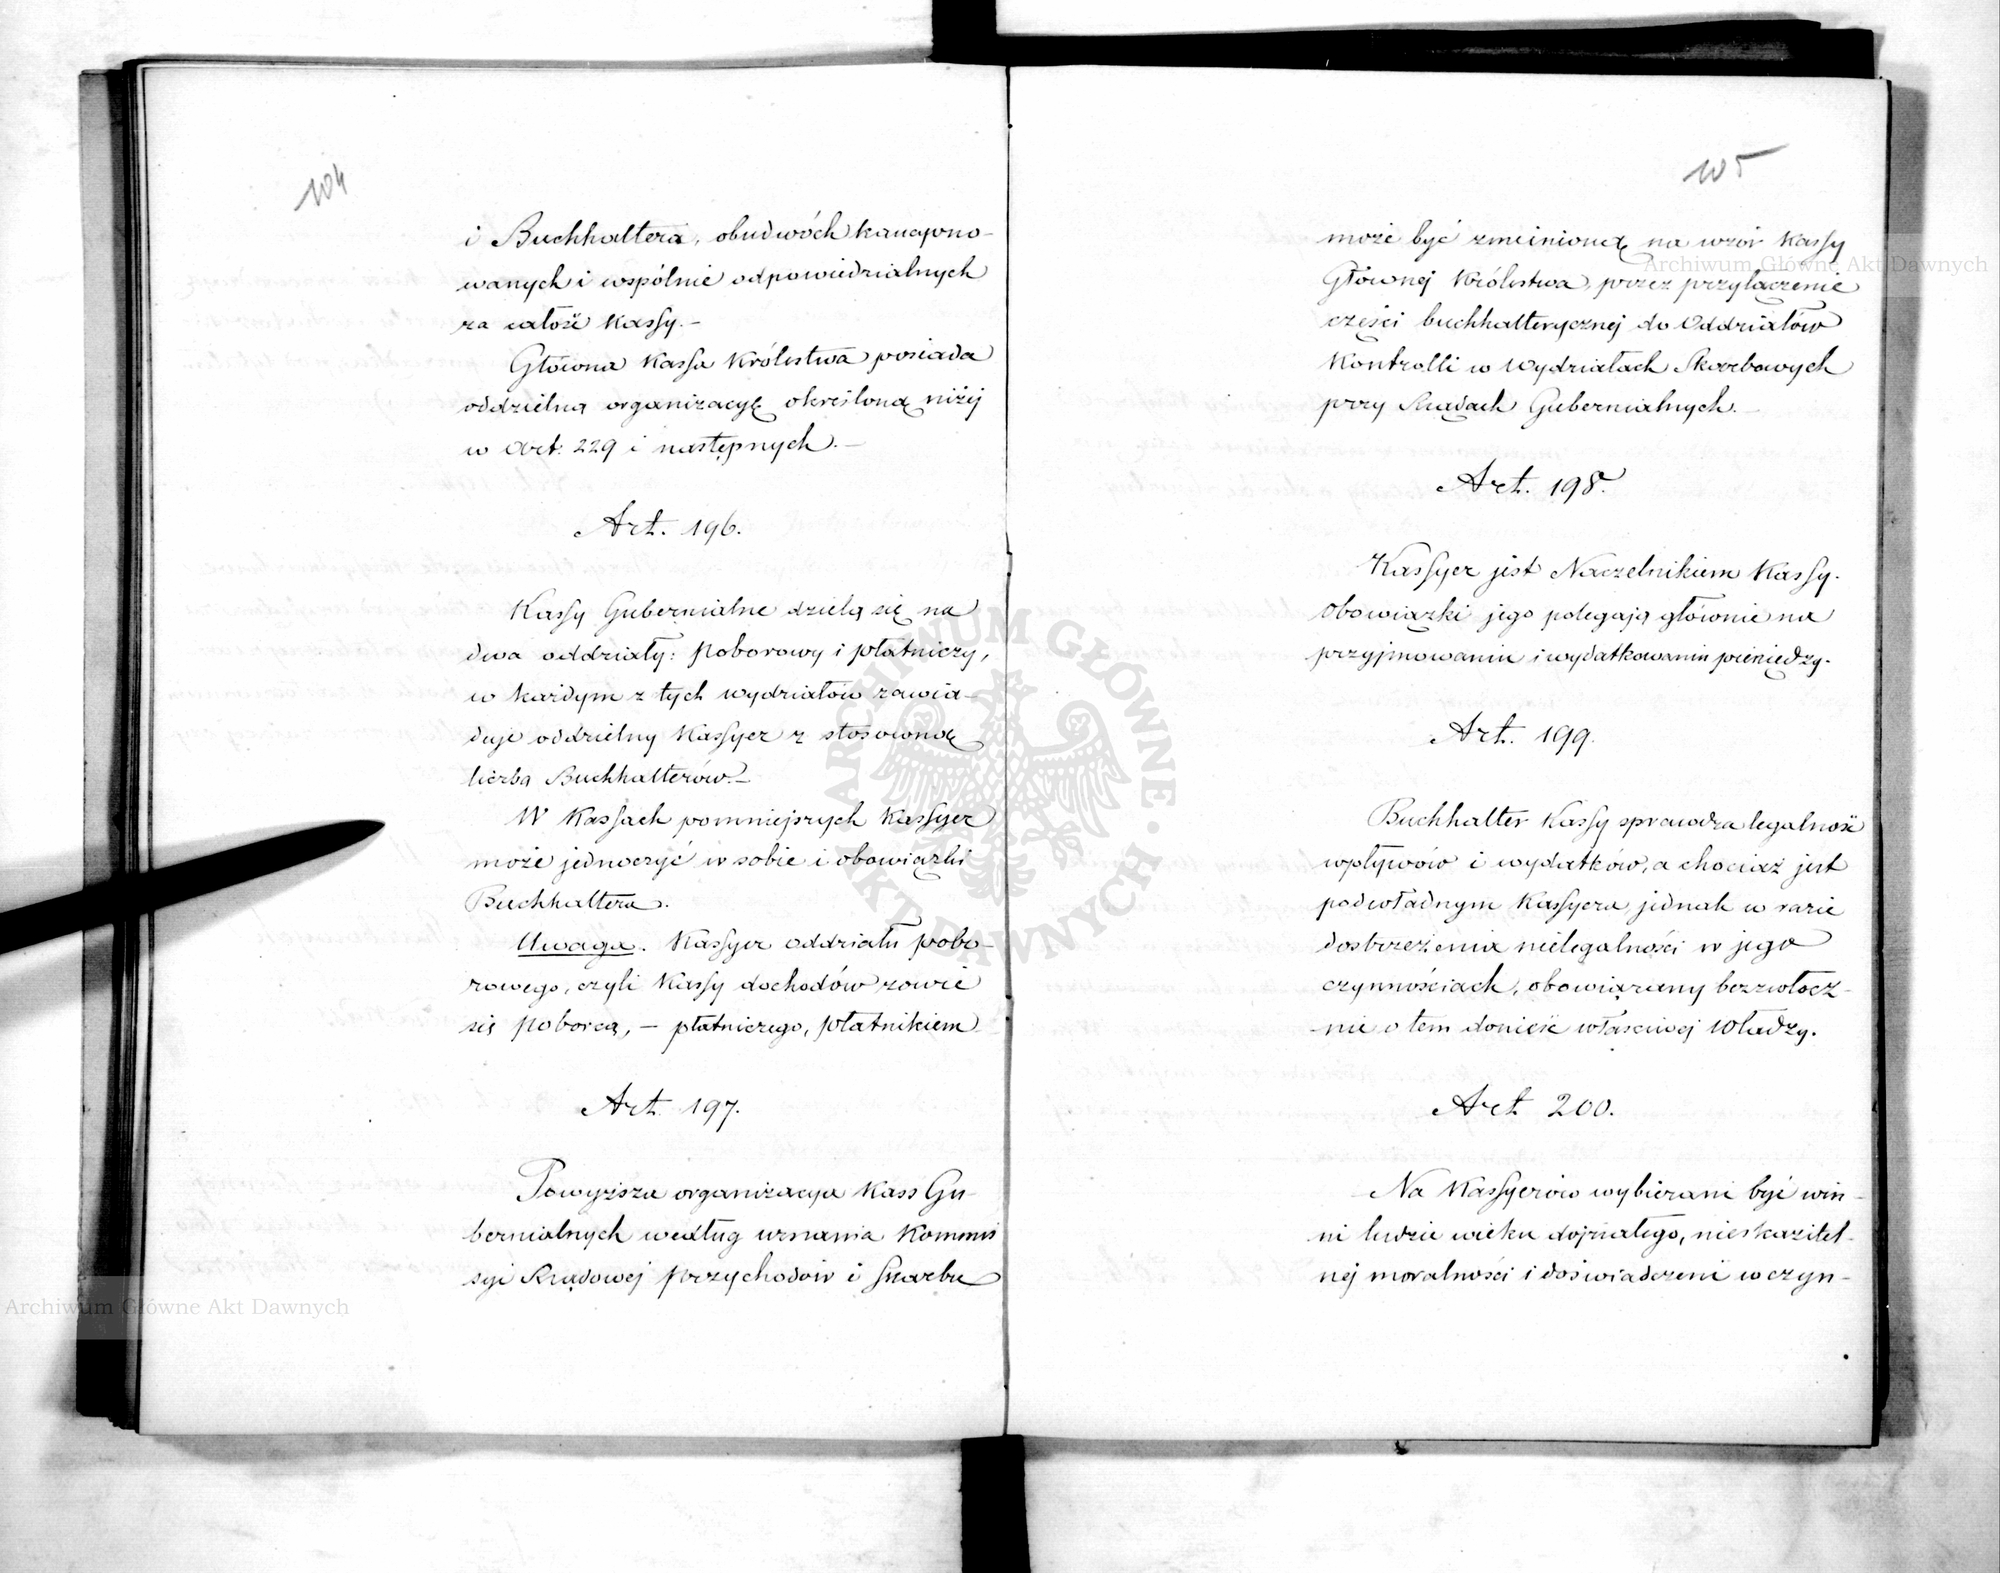 104
i Buchhaltera, obudwóch kaucyono-
wanych i wspólnie odpowiedzialnych
za całość Kassy.-
Główna Kassa Królestwa posiada
oddzielną organizacyę określoną niżej
w Art: 229 i następnych.-
Art. 196.
Kassy Gubernialne dzielą się na
dwa oddziały: poborowy i płatniczy,
w każdym z tych wydziałów zawia-
duje oddzielny Kassyer z stosowną
liczbą Buchhalterów.-
W Kassach pomniejszych Kassyer
może jednoczyć w sobie i obowiązki
Buchhaltera.
Uwaga. Kassyer oddziału pobo-
rowego, czyli Kassy dochodów zowie
się poborcą, - płatniczego, płatnikiem
Art. 197.
Powyższa organizacya Kass Gu-
bernialnych według uznania Kommis
syi Rządowej Przychodów i Skarbu
105
może być zmienioną na wzór Kassy
Głównej Królestwa, przez przyłączenie
części buchhalterycznej do Oddziałów
Kontrolli w Wydziałach Skarbowych
przy Rządach Gubernialnych.-
Art. 198.
Kassyer jest Naczelnikiem Kassy.
Obowiązki jego polegają głównie na
przyjmowaniu i wydatkowaniu pieniędzy.
Art. 199.
Buchhalter Kassy sprawdza legalność
wpływów i wydatków, a chociaż jest
podwładnym Kassyera jednak w razie
dostrzeżenia nielegalności w jego
czynnościach, obowiązany bezzwłocz-
nie o tem donieść właściwej Władzy.
Art 200.
Na Kassyerów wybierani być win-
ni ludzie wieku dojrzałego, nieskazitel-
nej moralności i doświadczeni w czyn-
Archiwum Główne Akt Dawnych
Archiwum Główne Akt Dawnych
ARCHIWUM GŁÓWNE AKT DAWNYCH